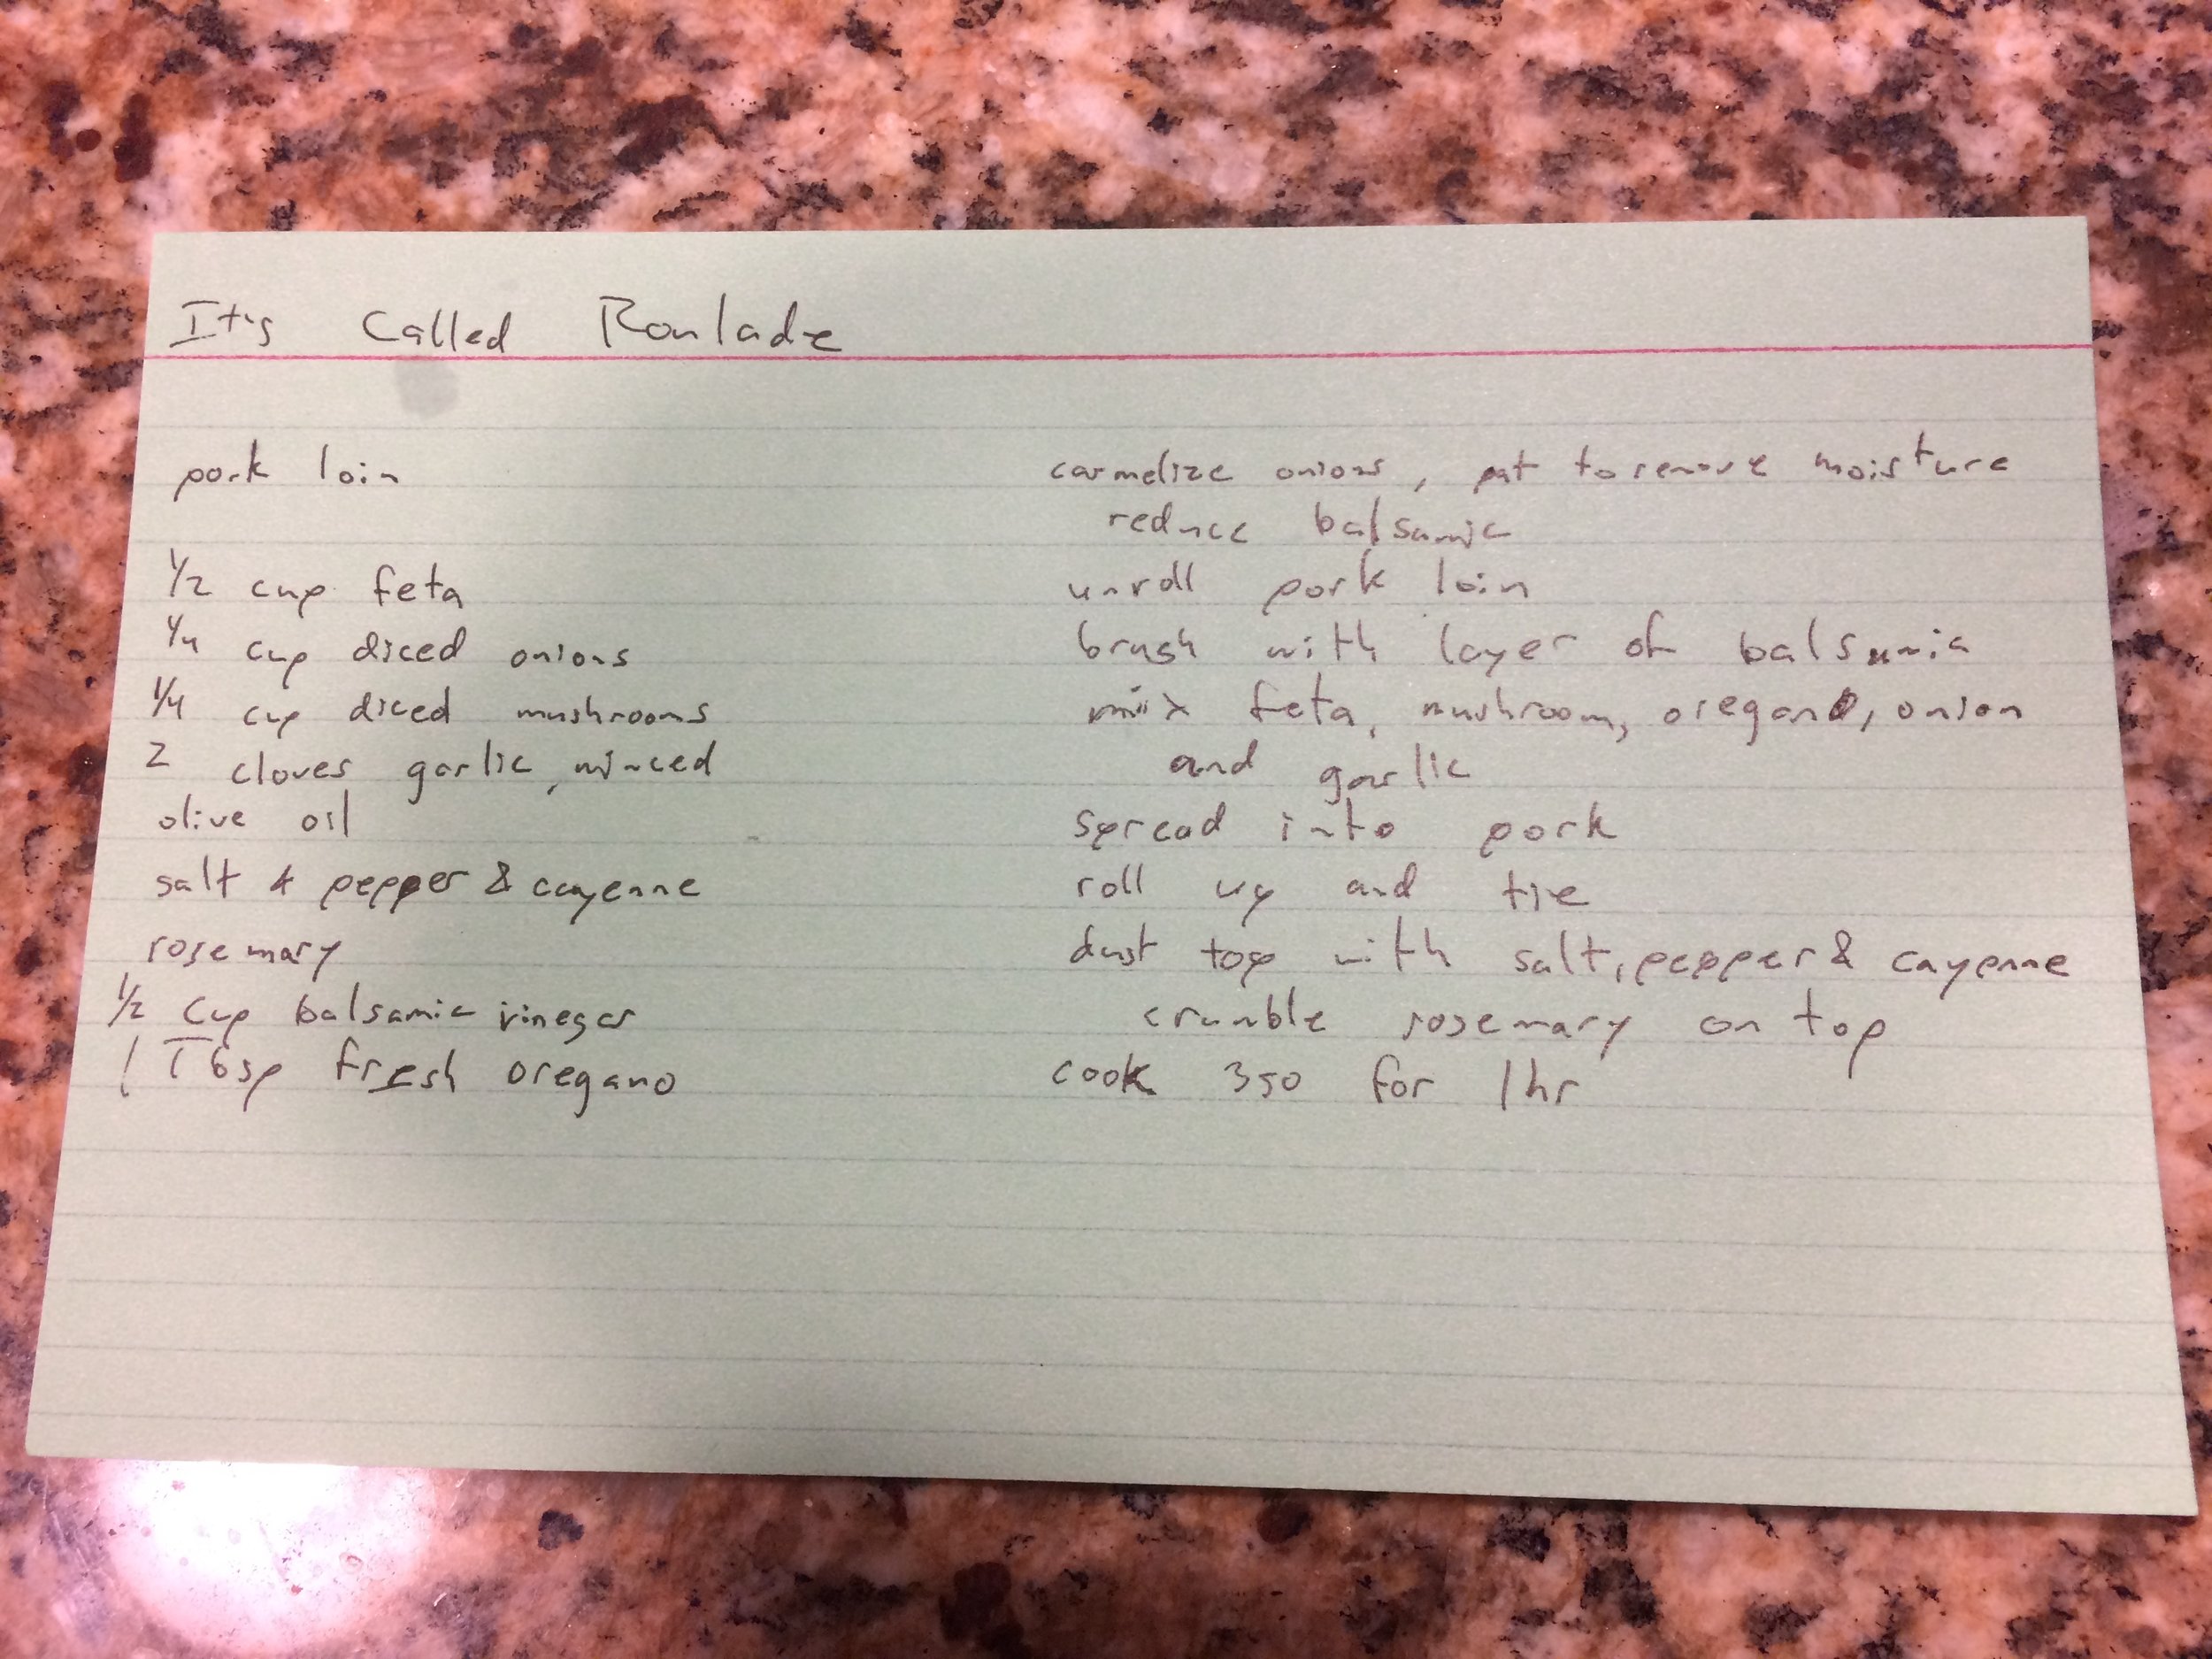 It's Called Roulade
pork loin
1/2 cup feta
1/4 cup diced onions
1/4 cup diced mushrooms
2 cloves garlic, minced
olive oil
salt & pepper & cayenne
rosemary
1/2 cup balsamic vinegar
1 Tbsp fresh oregano
carmelize onions, pat to remove moisture
reduce balsamic
unroll pork loin
brush with layer of balsamic
mix feta, mushroom, oregano, onion
and garlic
spread into pork
roll up and tie
dust top with salt, pepper & cayenne
crumble rosemary on top
cook 350 for 1hr